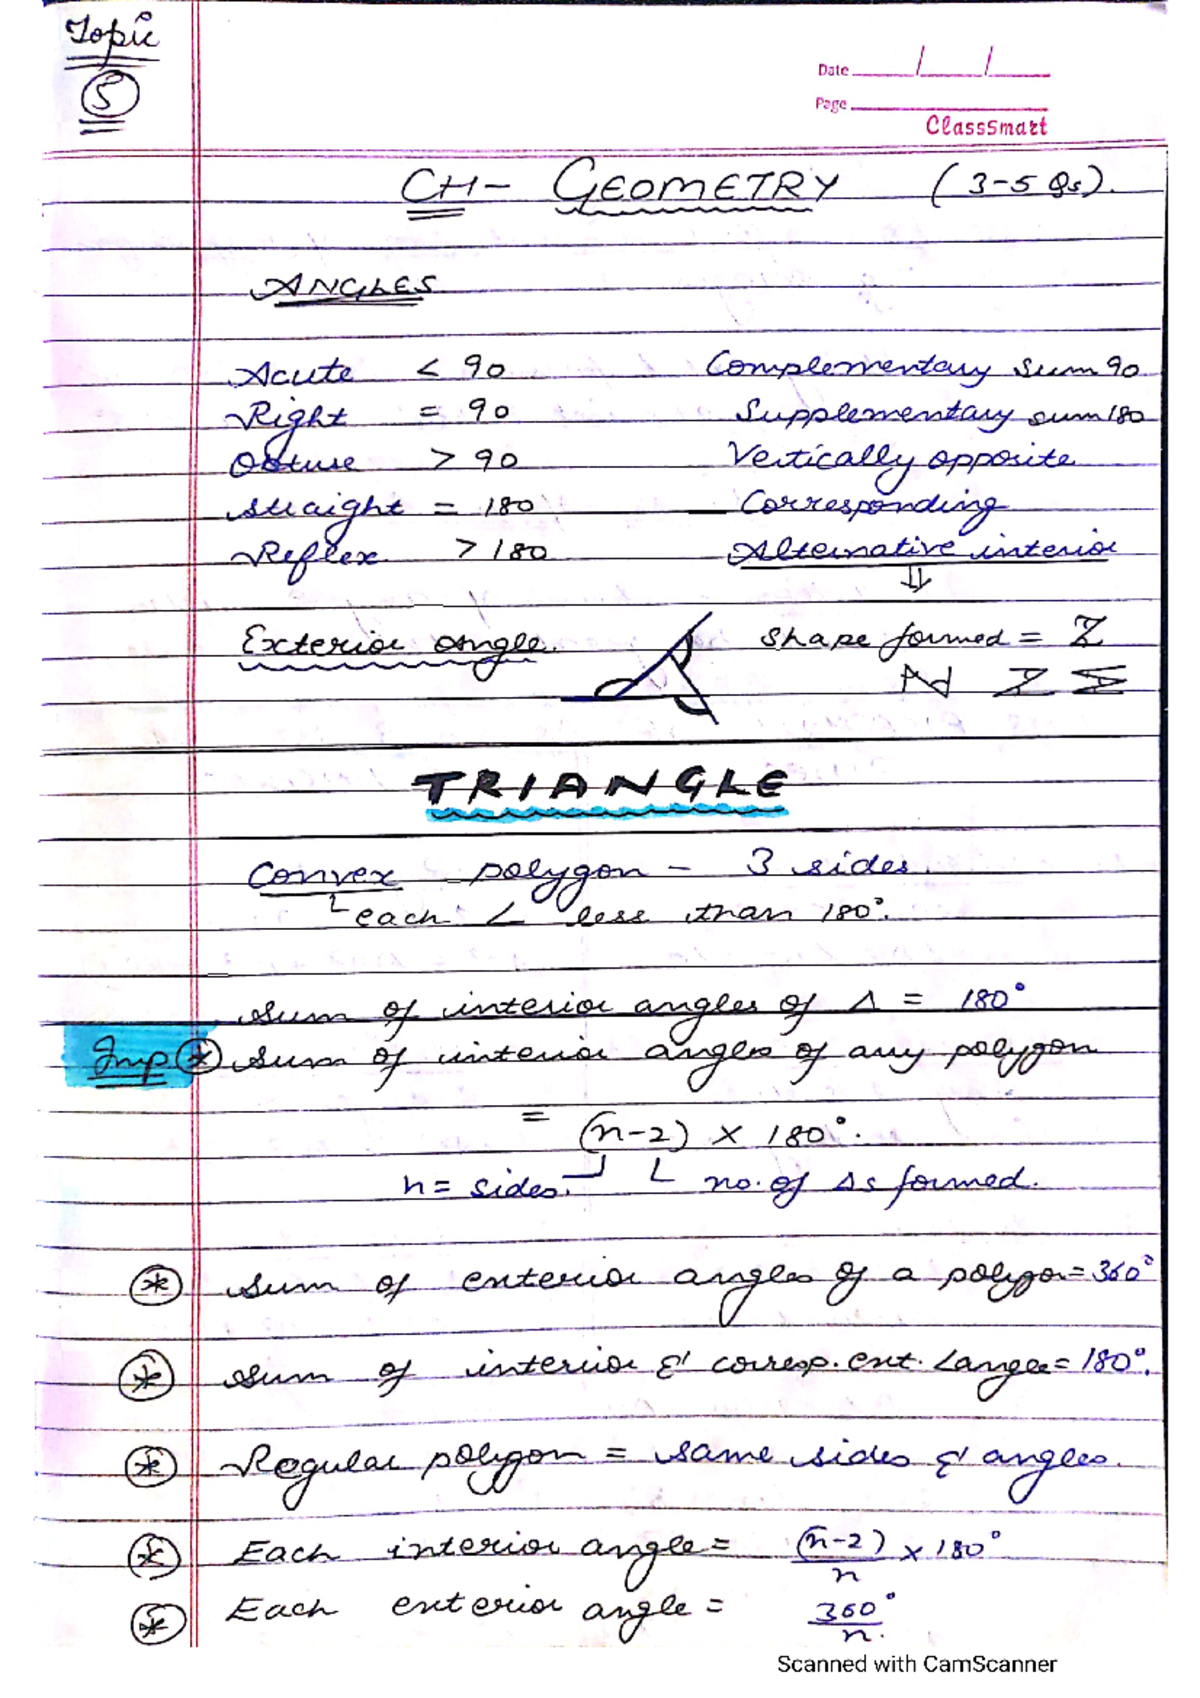 Topic
5
Date / /
Page
ClassSmart
CH- GEOMETRY (3-5 Qs).
ANGLES
Acute < 90 Complementary Sum 90
Right = 90 Supplementary sum 180
Obtuse > 90 Vertically opposite
Straight = 180 Corresponding
Reflex > 180 Alternative interior
⇓
Exterior angle. Shape formed = Z
TRIANGLE
Convex polygon - 3 sides.
each ∠ less than 180°.
Sum of interior angles of Δ = 180°
Imp * Sum of interior angles of any polygon
= (n-2) × 180°.
n = sides. no. of Δs formed.
* Sum of exterior angles of a polygon = 360°
* Sum of interior & corresp. ext. ∠angle = 180°.
* Regular polygon = same sides & angles.
* Each interior angle = (n-2)/n × 180°
* Each exterior angle = 360°/n.
Scanned with CamScanner